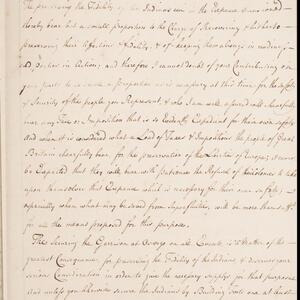 The preserving the Fidelity of the Indians in the Expence
thereby bear but a small proportion to the Charge of Recovering & hitherto
preserving their Affections & Fidelity, & of keeping them always in readiness
in Action; and therefore I cannot doubt of your Contributing on
your parts to such a Proportion as is necessary at this time for the safety
& Security of the people you Represent, & who I am well assured will chearfully
bear any Tax or Imposition that is so Evidently Expedient for their own safety
and when it is considered what a Load of Taxes & Impositions the people of Great
Britain chearfully bear for the preservation of the Liberties of Europe, it cannot
be Expected that they will bear with patience the Refusal of
upon themselves this Expence which is necessary for their own safety;
especially when what may be saved from Superfluities, will be more than suffic
for all the means proposed for this purpose.
The Securing the Garrison at Oswego on all Events is a Matter of the
greatest Consequence for preserving the Fidelity of the Indians & deserves your
serious Consideration in order to give the necessary supplys for that purpose
And unless you likewise secure the Indians by Building Forts one at least